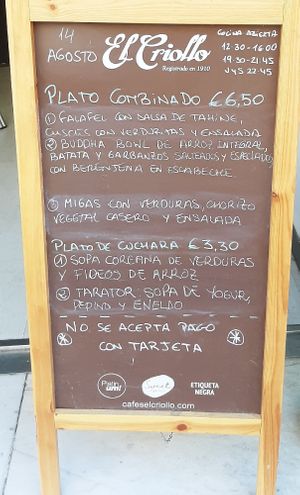 14
AGOSTO
El Criollo
Registrado en 1910
COCINA ABIERTA
12:30-16:00
19:30-21:45
J Y S 22:45
PLATO COMBINADO €6,50
① FALAFEL CON SALSA DE TAHINE,
CUSCÚS CON VERDURITAS Y ENSALADA
② BUDDHA BOWL DE ARROZ INTEGRAL,
BATATA Y GARBANZOS SALTEADOS Y ESPECIADOS
CON BERENJENA EN ESCABECHE
③ MIGAS CON VERDURAS, CHORIZO
VEGETAL CASERO Y ENSALADA
PLATO DE CUCHARA €3,30
① SOPA COREANA DE VERDURAS
Y FIDEOS DE ARROZ
② TARATOR SOPA DE YOGUR,
PEPINO Y ENELDO
NO SE ACEPTA PAGO
CON TARJETA
ETIQUETA
NEGRA
cafeselcriollo.com